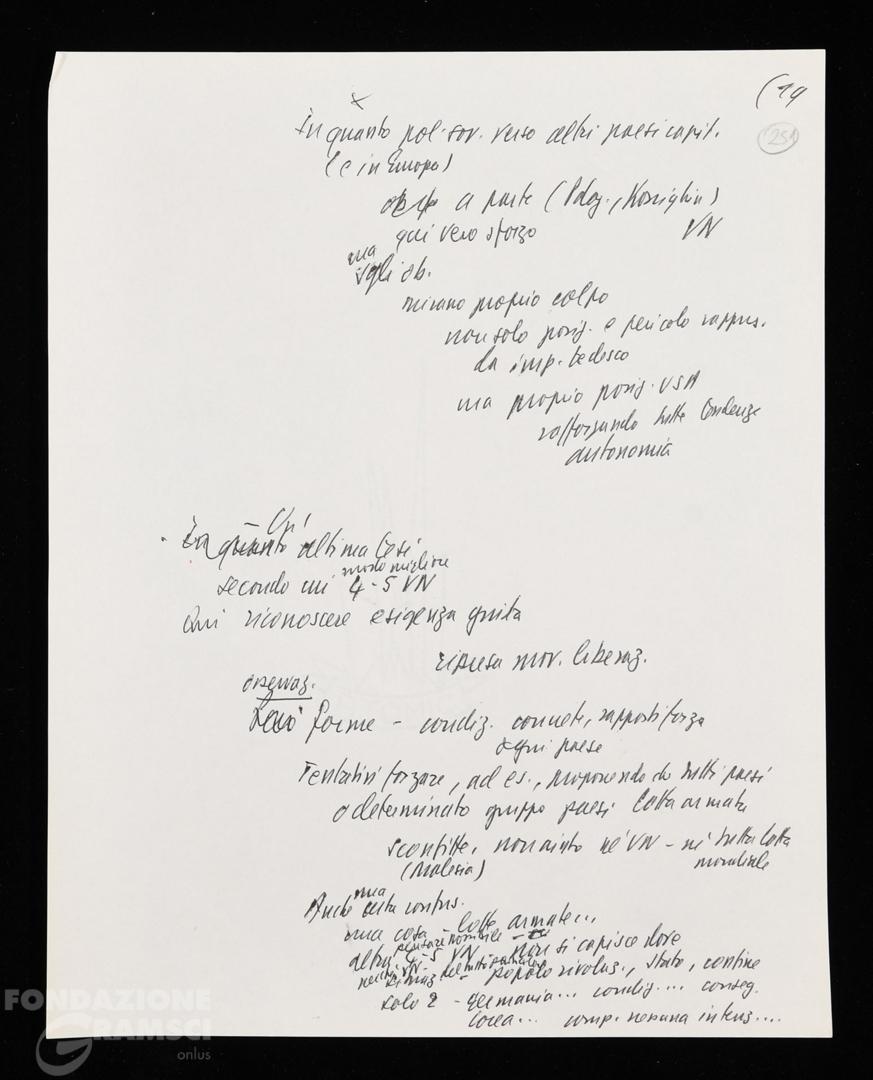 (19
251
x
In quanto pol. sov. verso altri paesi capit.
(e in Europa)
a parte (Podg., Kossighin)
qui vero sforzo VN
ma
sugli ob.
mirano proprio colpo
non solo posiz. e pericolo rappres.
da imp. tedesco
ma proprio posiz. USA
rafforzando tutte tendenze
autonomia
ultima tesi
modo migliore
secondo cui 4-5 VN
Qui riconoscere esigenza giusta
ripresa mov. liberaz.
osservaz.
forme - condiz. concrete, rapporti forza
ogni paese
Tentativi forzare, ad es., proponendo che tutti paesi
o determinato gruppo paesi lotta armata
sconfitte, non aiuto né VN - né tutta lotta
(Malesia) mondiale
ma
Anche certa confus.
una cosa - lotte armate...
pensare possibile
altra 4-5 VN non si capisce dove
popolo rivoluz., stato, confine
solo 2 - Germania... condiz.... conseg.
Corea... comp. nessuna intenz....
FONDAZIONE
GRAMSCI
onlus